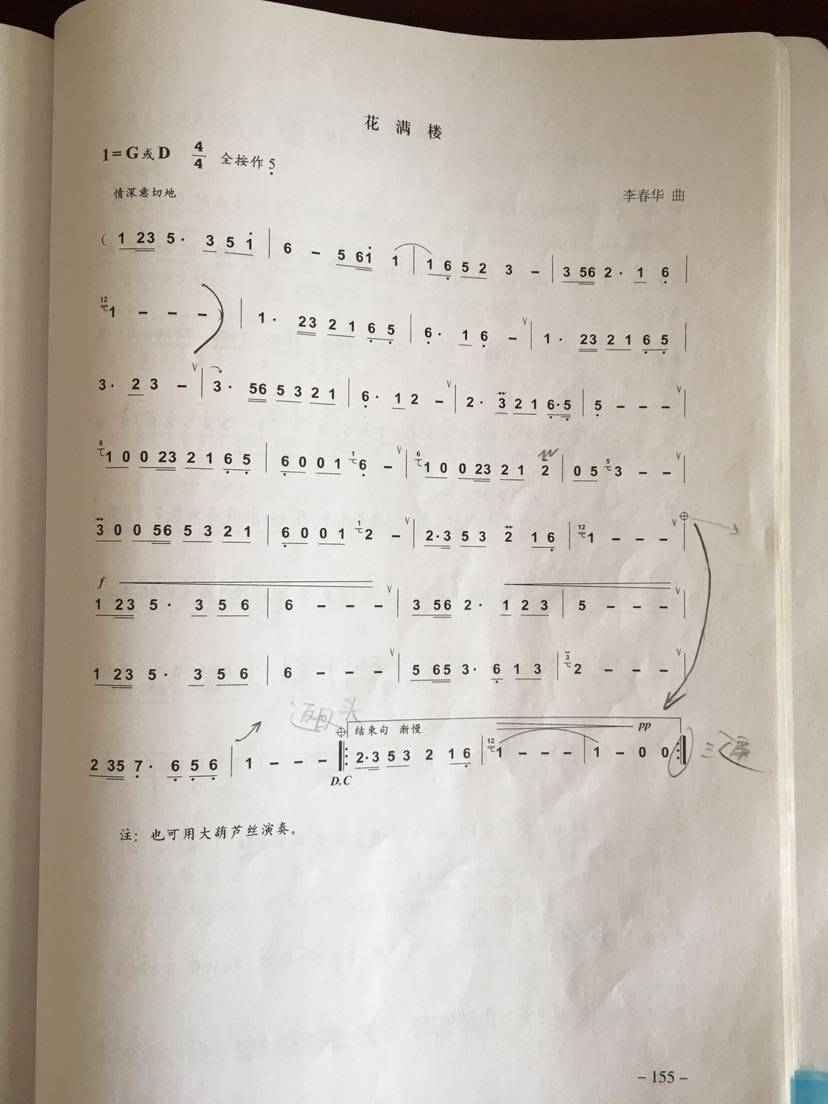 花 满 楼
1=G或D 4/4 全按作5̣
情深意切地 李春华 曲
( 1 23 5· 3 5 1̇ | 6 – 5 61̇ 1 | 1 6̣ 5 2 3 – | 3 56 2· 1 6̣ |
12 1 – – – ) | 1· 23 2 1 6̣ 5̣ | 6̣· 1 6̣ – V | 1· 23 2 1 6̣ 5̣ |
3· 2 3 – V | 3· 56 5 3 2 1 | 6̣· 1 2 – V | 2· 3 2 1 6̣·5̣ | 5̣ – – – V |
6 1 0 0 23 2 1 6̣ 5̣ | 6̣ 0 0 1 1 6̣ – V | 6 1 0 0 23 2 1 2 | 0 5 5 3 – – V |
3 0 0 56 5 3 2 1 | 6̣ 0 0 1 1 2 – V | 2·3 5 3 2 1 6̣ | 12 1 – – – V | ⊕
f
1 23 5· 3 5 6 | 6 – – – V | 3 56 2· 1 2 3 | 5 – – – V |
1 23 5· 3 5 6 | 6 – – – V | 5 65 3· 6̣ 1 3 | 3 2 – – – V |
返回头
⊕ 结束句 渐慢 pp
2 35 7̣· 6̣ 5̣ 6̣ | 1 – – – ‖: 2·3 5 3 2 1 6̣ | 12 1 – – – | 1 – 0 0 :‖ 三遍
D.C
注：也可用大葫芦丝演奏。
– 155 –